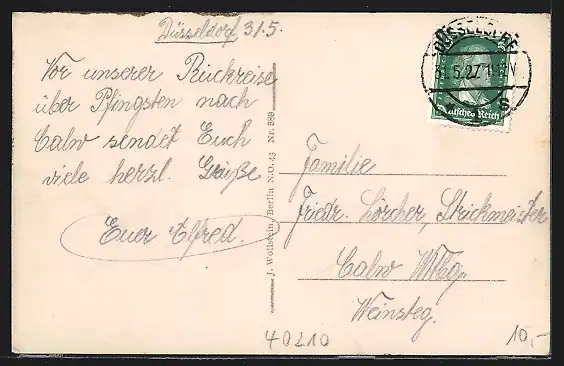 Düsseldorf 31.5.
Vor unserer Rückreise
über Pfingsten nach
Calw sendet Euch
viele herzl. Grüße
Euer Alfred.
J. Wollstein, Berlin N.O. 43 Nr. 389
DÜSSELDORF
31.5.27.
S
Deutsches Reich
Familie
Friedr. Lörcher, Strickmeister
Calw Wttbg.
Weinsteg.
40210
10,-